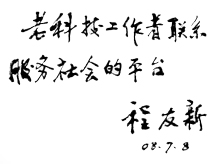 老科技工作者联系
服务社会的平台
程友新
08.7.8